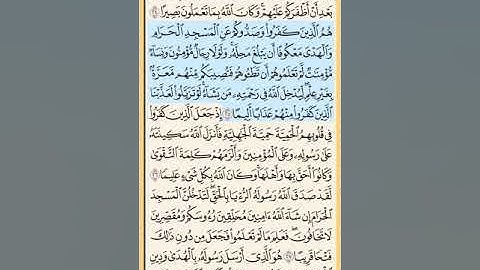 بَعْدِ أَنْ أَظْفَرَكُمْ عَلَيْهِمْ وَكَانَ ٱللَّهُ بِمَا تَعْمَلُونَ بَصِيرًا ٢٤
هُمُ ٱلَّذِينَ كَفَرُوا۟ وَصَدُّوكُمْ عَنِ ٱلْمَسْجِدِ ٱلْحَرَامِ
وَٱلْهَدْىَ مَعْكُوفًا أَن يَبْلُغَ مَحِلَّهُۥ وَلَوْلَا رِجَالٌ مُّؤْمِنُونَ وَنِسَآءٌ
مُّؤْمِنَـٰتٌ لَّمْ تَعْلَمُوهُمْ أَن تَطَـُٔوهُمْ فَتُصِيبَكُم مِّنْهُم مَّعَرَّةٌۢ
بِغَيْرِ عِلْمٍ لِّيُدْخِلَ ٱللَّهُ فِى رَحْمَتِهِۦ مَن يَشَآءُ لَوْ تَزَيَّلُوا۟ لَعَذَّبْنَا
ٱلَّذِينَ كَفَرُوا۟ مِنْهُمْ عَذَابًا أَلِيمًا ٢٥ إِذْ جَعَلَ ٱلَّذِينَ كَفَرُوا۟
فِى قُلُوبِهِمُ ٱلْحَمِيَّةَ حَمِيَّةَ ٱلْجَـٰهِلِيَّةِ فَأَنزَلَ ٱللَّهُ سَكِينَتَهُۥ
عَلَىٰ رَسُولِهِۦ وَعَلَى ٱلْمُؤْمِنِينَ وَأَلْزَمَهُمْ كَلِمَةَ ٱلتَّقْوَىٰ
وَكَانُوٓا۟ أَحَقَّ بِهَا وَأَهْلَهَا وَكَانَ ٱللَّهُ بِكُلِّ شَىْءٍ عَلِيمًا ٢٦
لَّقَدْ صَدَقَ ٱللَّهُ رَسُولَهُ ٱلرُّءْيَا بِٱلْحَقِّ لَتَدْخُلُنَّ ٱلْمَسْجِدَ
ٱلْحَرَامَ إِن شَآءَ ٱللَّهُ ءَامِنِينَ مُحَلِّقِينَ رُءُوسَكُمْ وَمُقَصِّرِينَ
لَا تَخَافُونَ فَعَلِمَ مَا لَمْ تَعْلَمُوا۟ فَجَعَلَ مِن دُونِ ذَٰلِكَ
فَتْحًا قَرِيبًا ٢٧ هُوَ ٱلَّذِىٓ أَرْسَلَ رَسُولَهُۥ بِٱلْهُدَىٰ وَدِينِ